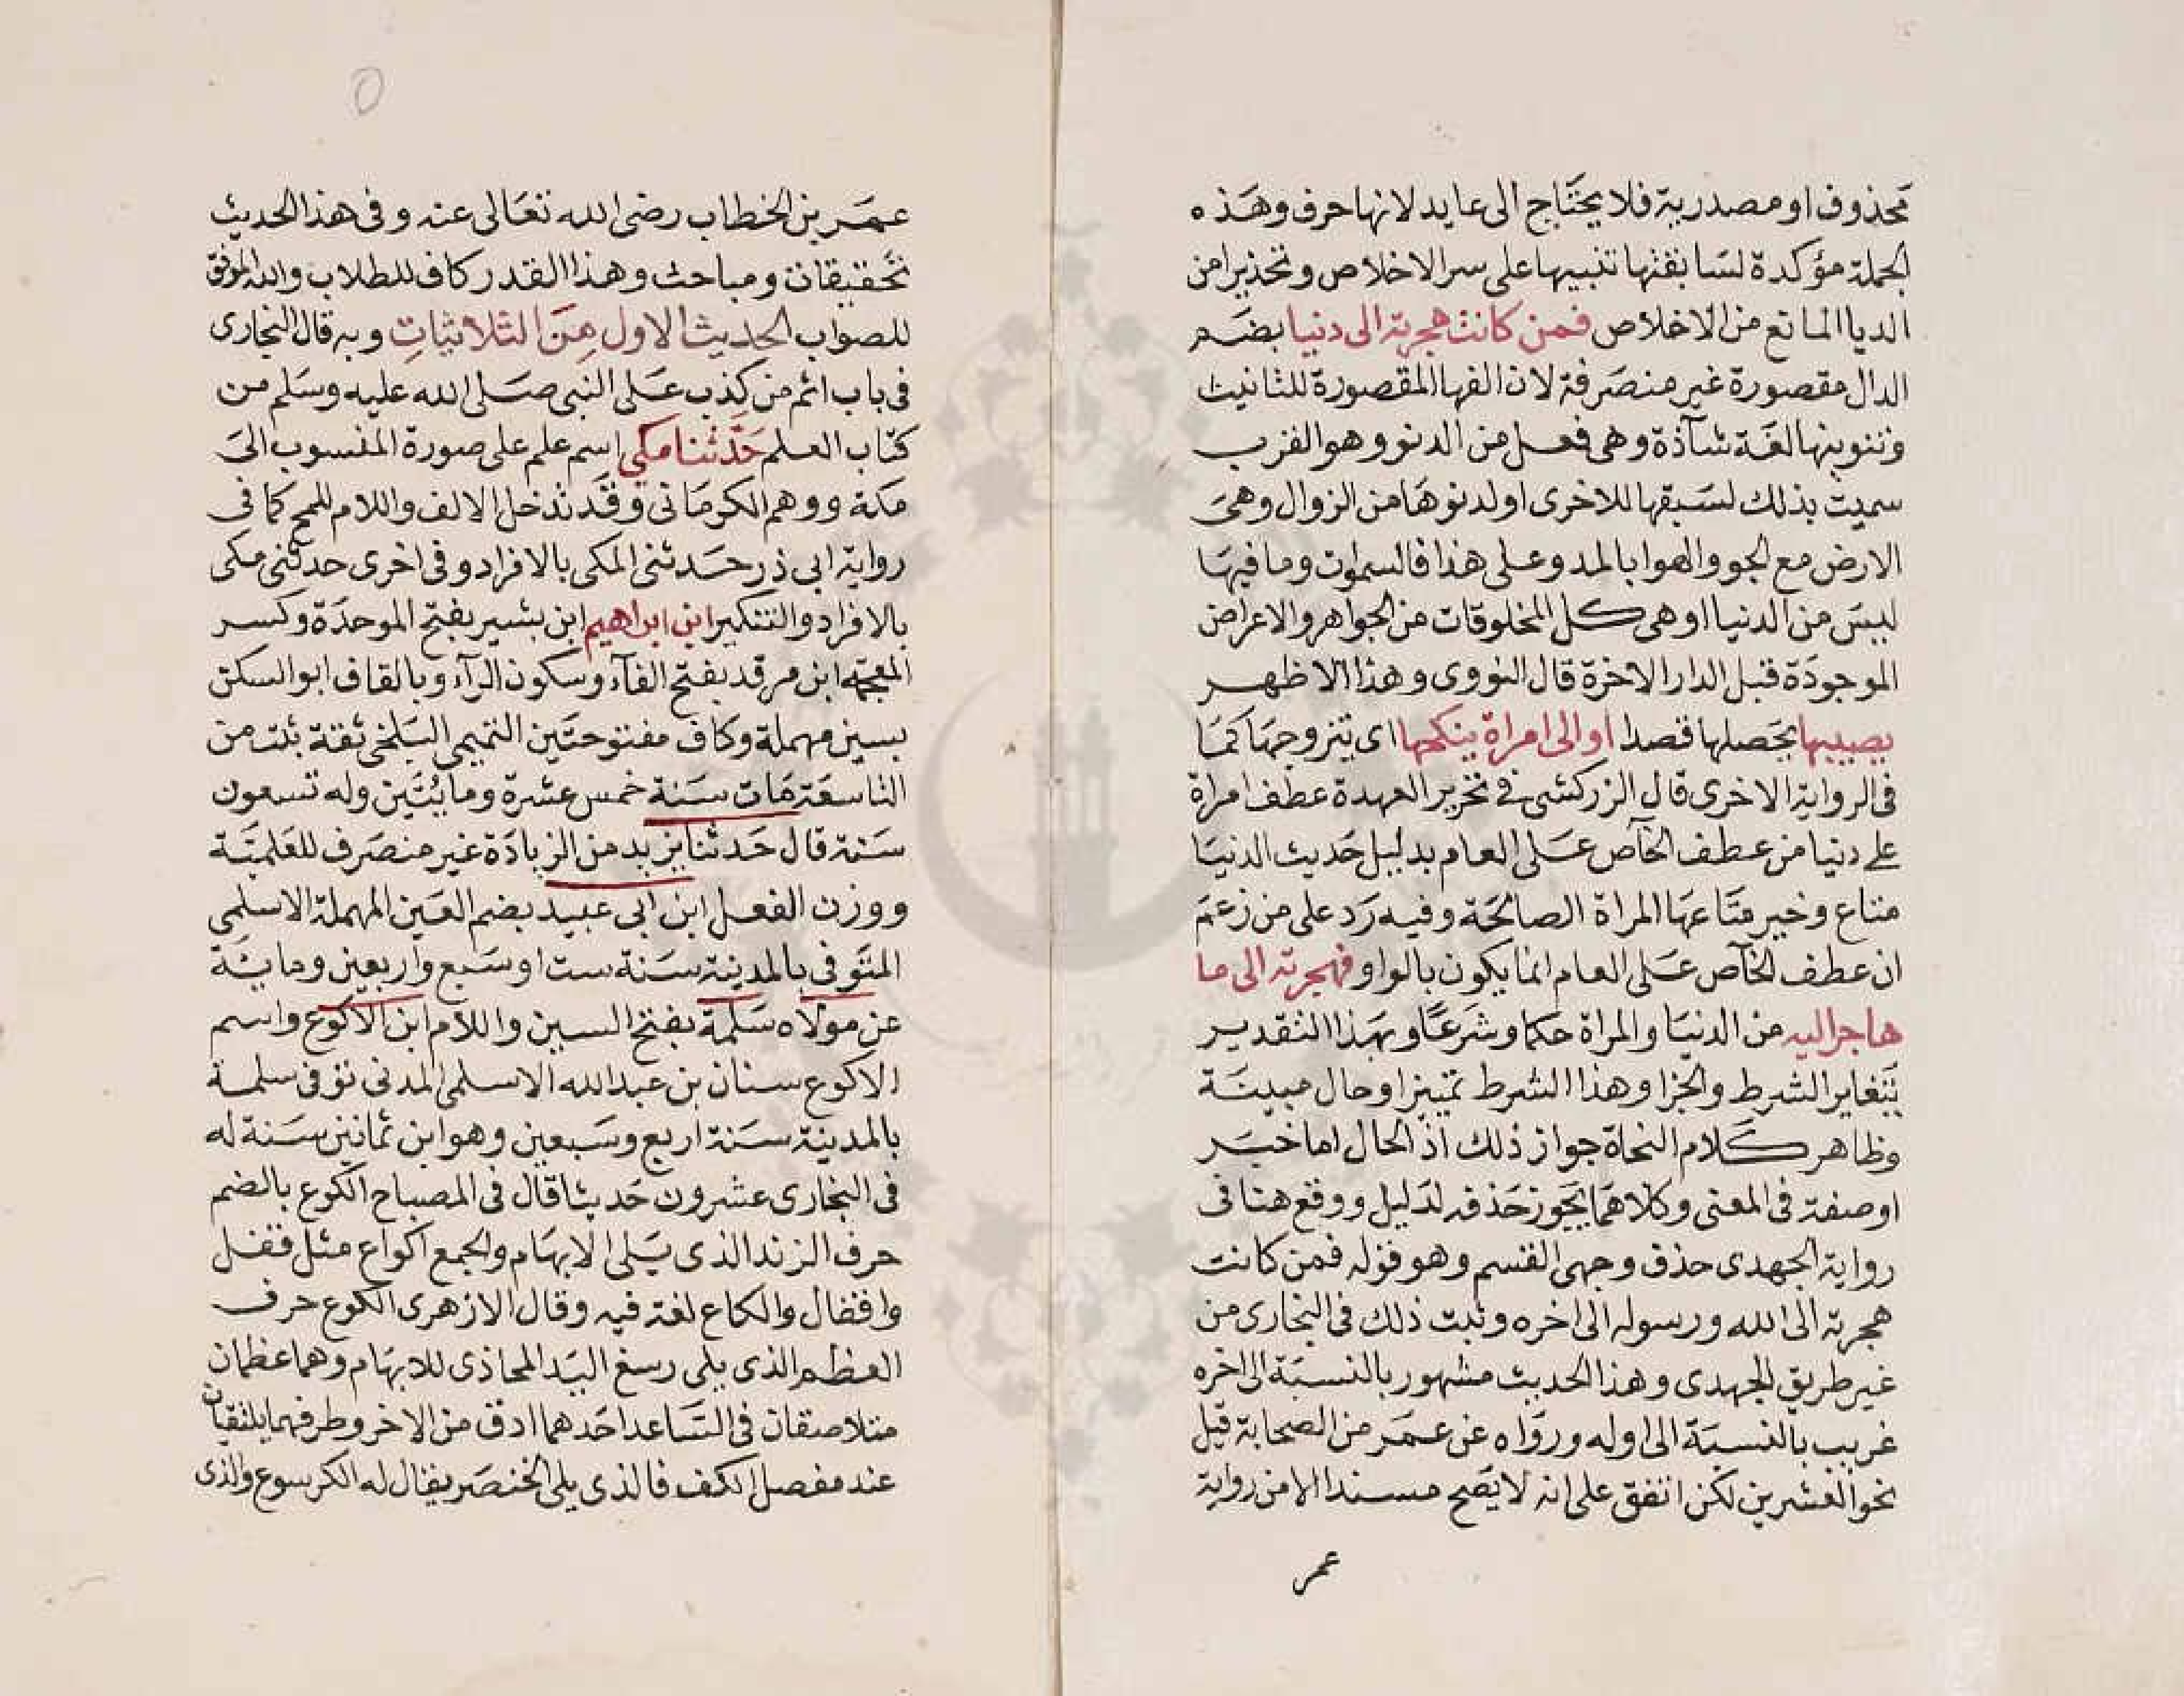 محذوف او مصدرية فلا يحتاج الى عايد لانها حرف وهذه
الجملة مؤكدة لسابقتها تنبيها على سر الاخلاص وتحذيرا من
الريا المانع من الاخلاص فمن كانت هجرته الى دنيا بضم
الدال مقصورة غير منصرفة لان الفها المقصورة للتانيث
وتنوينها لغة شآذة وهى فعل من الدنو وهو القرب
سميت بذلك لسبقها للاخرى او لدنوها من الزوال وهى
الارض مع الجو والهوا بالمد وعلى هذا فالسموات وما فيها
ليس من الدنيا او هى كل المخلوقات من الجواهر والاعراض
الموجودة قبل الدار الاخرة قال النووى وهذا الاظهر
يصيبها يحصلها قصدا او الى امراة ينكحها اى يتزوجها كما
فى الرواية الاخرى قال الزركشى فى تحرير العهدة عطف امراة
على دنيا من عطف الخآص على العام بدليل حديث الدنيا
متاع وخير متاعها المراة الصالحة وفيه رد على من زعم
ان عطف الخآص على العام انما يكون بالواو فهجرته الى ما
هاجر اليه من الدنيا والمراة حكما وشرعا وبهذا التقدير
يتغاير الشرط والجزا وهذا الشرط تمييز او حال مبينة
وظاهر كلام النحاة جواز ذلك اذ الحال اما خبر
او صفة فى المعنى وكلاهما يجوز حذفه لدليل ووقع هنا فى
رواية الجهدى حذف وجهى القسم وهو قوله فمن كانت
هجرته الى الله ورسوله الى اخره وثبت ذلك فى البخارى من
غير طريق الجهدى وهذا الحديث مشهور بالنسبة الى اخره
غريب بالنسبة الى اوله ورواه عن عمر من الصحابة قيل
نحو العشرين لكن اتفق على انه لا يصح مسندا الا من رواية
عمر
عمر بن الخطاب رضى الله تعالى عنه وفى هذا الحديث
تحقيقات ومباحث وهذا القدر كاف للطلاب والله الموفق
للصواب الحديث الاول من الثلاثيات وبه قال البخارى
فى باب اثم من كذب على النبى صلى الله عليه وسلم من
كتاب العلم حدثنا مكى اسم علم على صورة المنسوب الى
مكة ووهم الكرمانى وقد تدخل الالف واللام للمح كما فى
رواية ابى ذر حدثنى المكى بالافراد وفى اخرى حدثنى مكى
بالافراد والتنكير ابن ابراهيم ابن بشير بفتح الموحدة وكسر
المعجمة ابن مرقد بفتح الفآء وسكون الرآء وبالقاف ابو السكن
بسين مهملة وكاف مفتوحتين التميمى البلخى ثقة ثبت من
التاسعة مات سنة خمس عشرة ومائتين وله تسعون
سنة قال حدثنا يزيد من الزيادة غير منصرف للعلمية
ووزن الفعل ابن ابى عبيد بضم العين المهملة الاسلمى
المتوفى بالمدينة سنة ست او سبع واربعين ومايئة
عن مولاه سلمة بفتح السين واللام ابن الاكوع واسم
الاكوع سنان بن عبد الله الاسلمى المدنى توفى سلمة
بالمدينة سنة اربع وسبعين وهو ابن ثمانين سنة له
فى البخارى عشرون حديثا قال فى المصباح الكوع بالضم
حرف الزند الذى يلى الابهام والجمع اكواع مثل قفل
واقفال والكاع لغة فيه وقال الازهرى الكوع حرف
العظم الذى يلى رسغ اليد المحاذى للابهام وهما عظمان
متلاصقان فى الساعد احدهما ادق من الاخر وطرفهما يلتقيان
عند مفصل الكف فالذى يلى الخنصر يقال له الكرسوع والذى